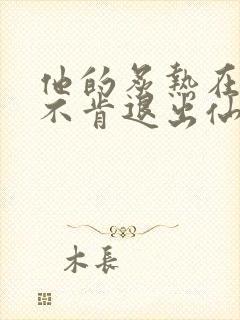 他的炙熱在
不肯退出仙
木長